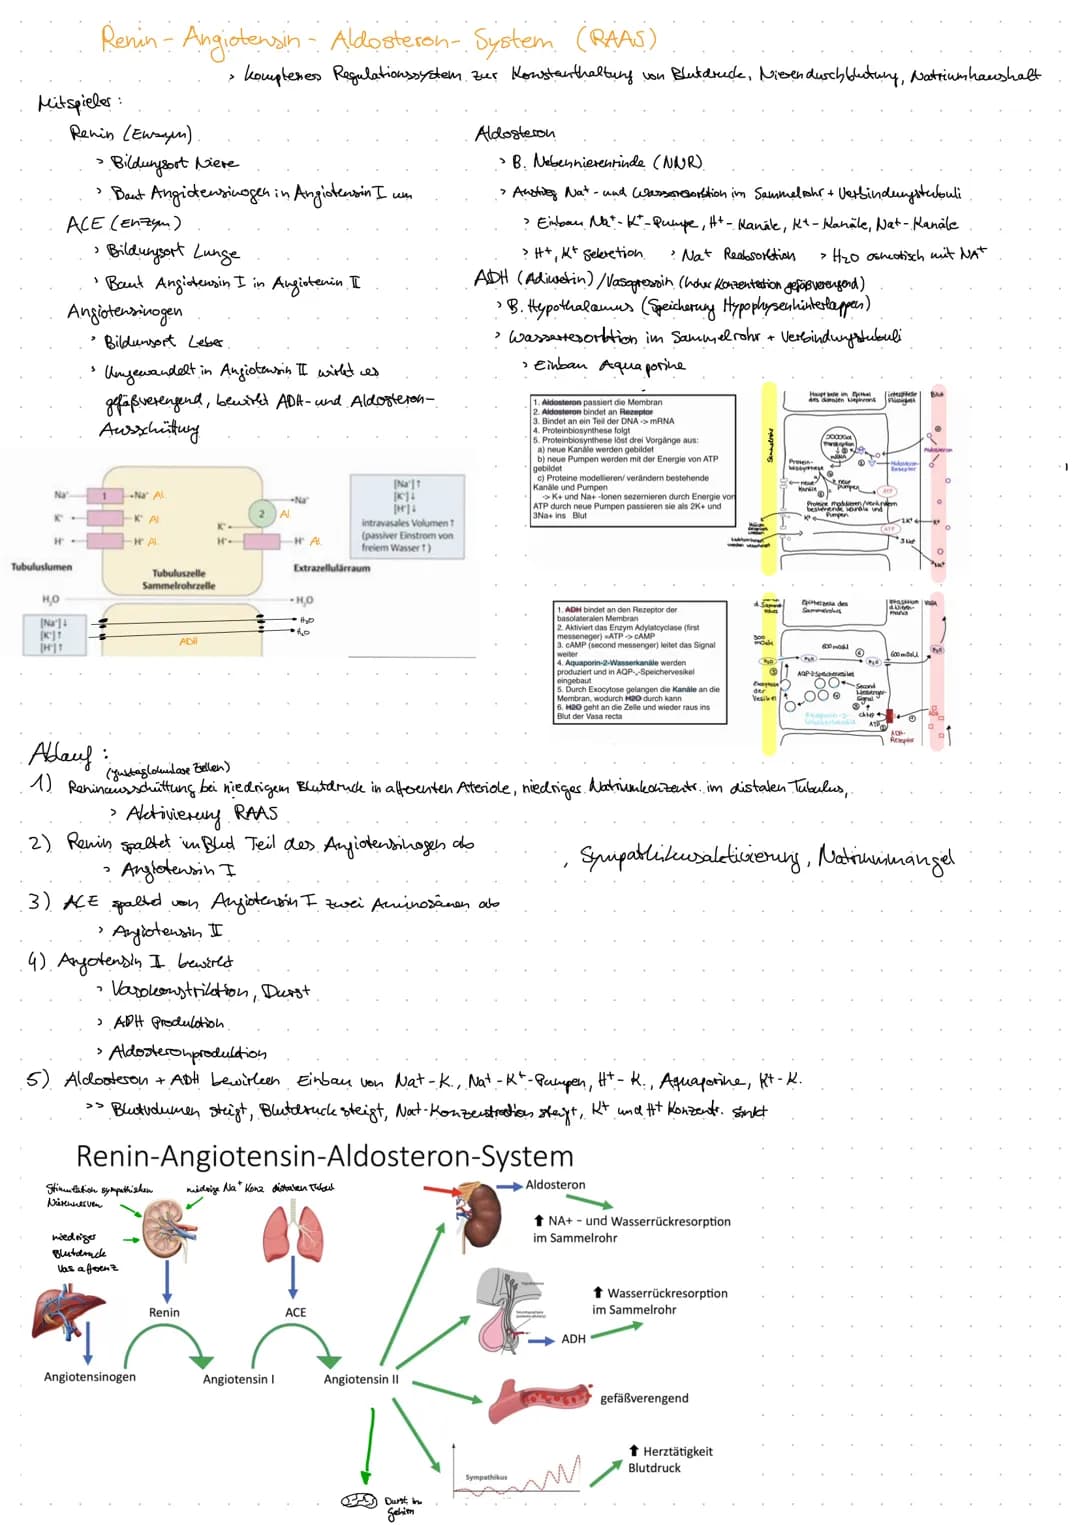 Renin - Angiotensin - Aldosteron - System (RAAS)
> komplexes Regulationssystem zur Konstanthaltung von Blutdruck, Nierendurchblutung, Natriumhaushalt
Mitspieler:
Renin (Enzym)
> Bildungsort Niere
> Baut Angiotensinogen in Angiotensin I um
ACE (Enzym)
> Bildungsort Lunge
> Baut Angiotensin I in Angiotenin II
Angiotensinogen
> Bildunsort Leber
> Umgewandelt in Angiotensin II wirkt es
gefäßverengend, bewirkt ADH- und Aldosteron-
Ausschüttung
Aldosteron
> B. Nebennierenrinde (NNR)
> Anstieg Na+ - und Wasserresorbtion im Sammelrohr + Verbindungstubuli
> Einbau Na+-K+-Pumpe, H+-Kanäle, K+-Kanäle, Na+-Kanäle
> H+, K+ Sekretion > Na+ Reabsorbtion > H2O osmotisch mit NA+
ADH (Adiuretin) / Vasopressin (hoher Konzentration gefäßverengend)
> B. Hypothalamus (Speicherung Hypophysenhinterlappen)
> Wasserresorbtion im Sammelrohr + Verbindungstubuli
> Einbau Aquaporine
1. Aldosteron passiert die Membran
2. Aldosteron bindet an Rezeptor
3. Bindet an ein Teil der DNA -> mRNA
4. Proteinbiosynthese folgt
5. Proteinbiosynthese löst drei Vorgänge aus:
a) neue Kanäle werden gebildet
b) neue Pumpen werden mit der Energie von ATP
gebildet
c) Proteine modellieren/ verändern bestehende
Kanäle und Pumpen
-> K+ und Na+ -Ionen sezernieren durch Energie von
ATP durch neue Pumpen passieren sie als 2K+ und
3Na+ ins Blut
Sammelrohr
Hauptzelle im Epithel
des distalen Nephrons
Interstitielle
Flüssigkeit
Blut
Transkription
mRNA
Aldosteron
Aldosteron-
Rezeptor
Protein-
biosynthese
neue
Kanäle
neue
Pumpen
ATP
Proteine modulieren/verändern
bestehende Kanäle und
Pumpen
ATP
2K+
3 Na+
Na+ Na+ Al.
K+ K+ Al
H+ H+ Al.
1
2
Na+
Al.
K+
H+
H+ Al.
[Na+]↑
[K+]↓
[H+]↓
intravasales Volumen ↑
(passiver Einstrom von
freiem Wasser ↑)
Tubuluslumen
Tubuluszelle
Sammelrohrzelle
Extrazellulärraum
H2O
H2O
H2O
H2O
[Na+]↓
[K+]↑
[H+]↑
ADH
1. ADH bindet an den Rezeptor der
basolateralen Membran
2. Aktiviert das Enzym Adylatcyclase (first
messeneger) =ATP -> cAMP
3. cAMP (second messenger) leitet das Signal
weiter
4. Aquaporin-2-Wasserkanäle werden
produziert und in AQP-2-Speichervesikel
eingebaut
5. Durch Exocytose gelangen die Kanäle an die
Membran, wodurch H2O durch kann
6. H2O geht an die Zelle und wieder raus ins
Blut der Vasa recta
Epithelzelle des
Sammelrohrs
300
mOsM
600 mOsM
600 mOsM
H2O
H2O
H2O
H2O
Exocytose
der
Vesikel
AQP-2-Speichervesikel
Second
Messenger-
Signal
Aquaporin-2-
Wasserkanäle
cAMP
ATP
ADH
ADH-
Rezeptor
Ablauf:
(juxtaglomuläre Zellen)
1) Reninausschüttung bei niedrigem Blutdruck in afferenten Ateriole, niedriges Natriumkonzentr. im distalen Tubulus,
> Aktivierung RAAS
2) Renin spaltet im Blut Teil des Angiotensinogen ab
, Sympathikusaktivierung, Natriummangel
> Angiotensin I
3) ACE spaltet von Angiotensin I zwei Aminosäuren ab
> Angiotensin II
4) Angotensin I bewirkt
> Vasokonstriktion, Durst
> ADH Produktion
> Aldosteronproduktion
5) Aldosteron + ADH bewirken Einbau von Na+-K., Na+-K+-Pumpen, H+-K., Aquaporine, K+-K.
>> Blutvolumen steigt, Blutdruck steigt, Na+-Konzentration steigt, K+ und H+ Konzentr. sinkt
Renin-Angiotensin-Aldosteron-System
Stimulation sympathischen
Nierennerven
niedrige Na+ Konz distalen Tubul
niedriger
Blutdruck
Vas afferenz
Renin
ACE
Angiotensinogen
Angiotensin I
Angiotensin II
Aldosteron
⬆ NA+ - und Wasserrückresorption
im Sammelrohr
⬆ Wasserrückresorption
im Sammelrohr
ADH
gefäßverengend
⬆ Herztätigkeit
Blutdruck
Sympathikus
Durst im
Gehirn